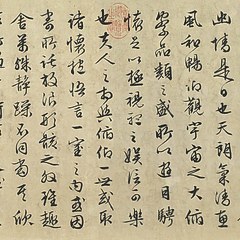 幽情是日也天朗氣清惠
風和暢仰觀宇宙之大俯
察品類之盛所以遊目騁
懷足以極視聽之娛信可樂
也夫人之相與俯仰一世或取
諸懷抱悟言一室之內或因
寄所託放浪形骸之外雖趣
舍萬殊靜躁不同當其欣